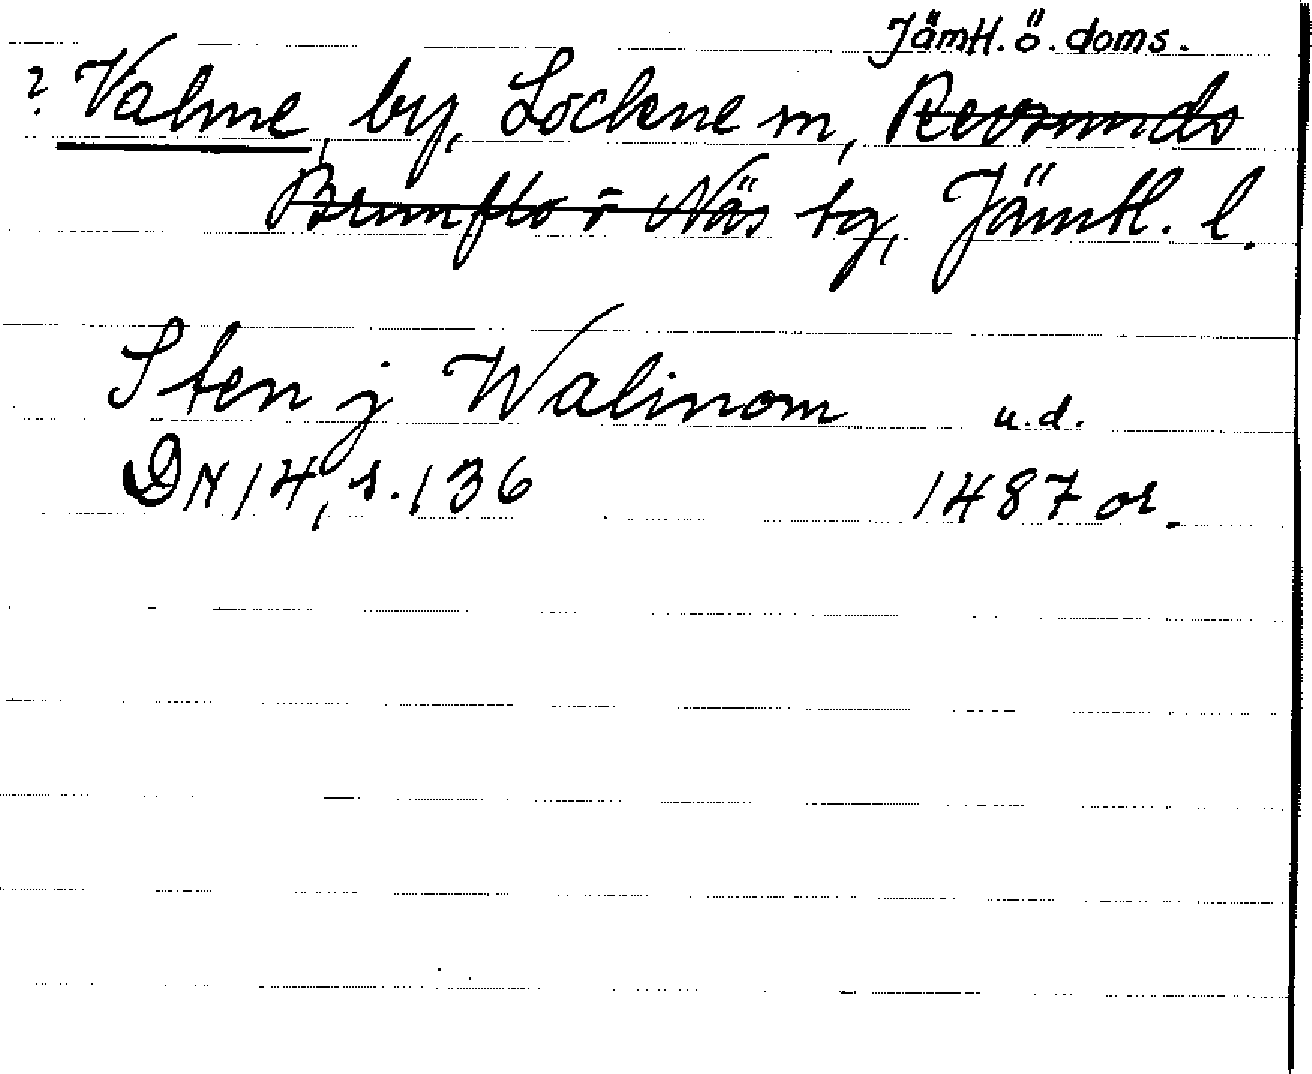 Jämtl. ö. doms.
? Valne, by, Lockne sn, Revsunds
Brunflo o Näs tg, Jämtl. l.
Sten j Walinom u.d.
DN 14, s. 136 1487 or.